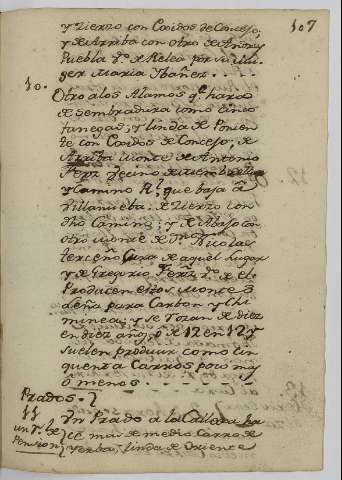 107
y Zierzo con Exidos de Conzejo,
y de Arriba con otro de Antonio
Puebla Vº. de Relea por su mu-
ger Maria Ibañez.
10. Otro a los Alamos qe. hara
de sembradura como cinco
fanegas; y linda de Ponien
te con Exidos de Conzejo, de
Arriba Monte de Antonio
Ferz Vecino de
y Camino Rl. que baja a
Villanueba. de Zierzo con
dho Camino; y de Abajo con
otro monte de Dn. Nicolas
Cura de aquel lugar
y de Gregorio Ferz. Vº. de el.
Producen estos Montes
Leña para Carbon y Chi
minea; y se Rozan de diez
en diez años, ó de 12 en 12 y
suelen produzir como cin
quenta Carros poco mas
o menos.
Prados.
11 Un Prado a la
un Rl. de Pension
ze mas de medio Carro de
yerba; linda de Oriente